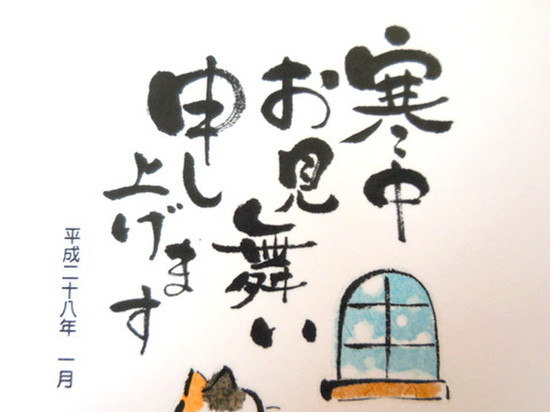 寒中
お見舞い
申し
上げます
平成二十八年 一月